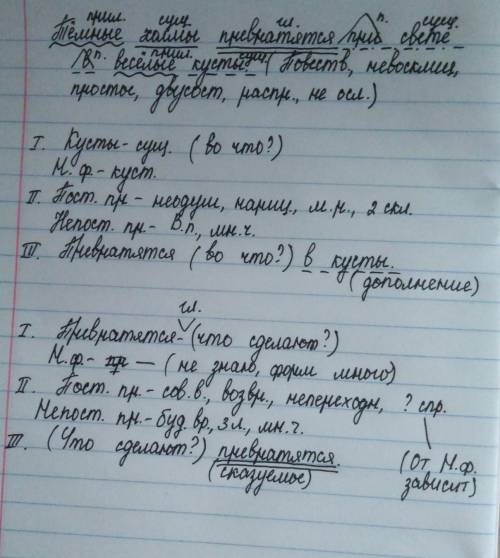 прил. сущ. гл. п. сущ.
Тёмные холмы превратятся при свете
п. прил. сущ.
в весёлые кусты. (Повеств, невосклиц,
простое, двусост, распр., не осл.)
I. Кусты - сущ. (во что?)
Н.ф - куст.
II. Пост. пр - неодуш, нариц., м.р., 2 скл.
Непост. пр - В.п., мн.ч.
III. Превратятся (во что?) в кусты.
(дополнение)
гл.
I. Превратятся - (что сделают?)
Н.ф - — (не знаю, форм много)
II. Пост. пр. - сов.в., возвр., непереходн, ? спр.
Непост. пр. - буд. вр, 3 л., мн.ч.
III. (Что сделают?) превратятся.
(сказуемое)
(От Н.ф.
зависит)